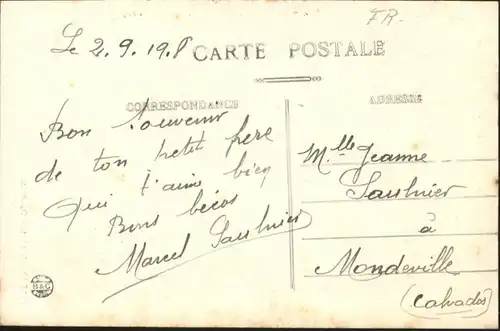 FR.
Le 2.9.19.8
CARTE POSTALE
CORRESPONDANCE
ADRESSE
Bon Souvenir
de ton petit père
Qui t'aime bien
Bons bécos
Marcel Saulnier
Mlle Jeanne
Saulnier
à
Mondeville
(Calvados)
B&G